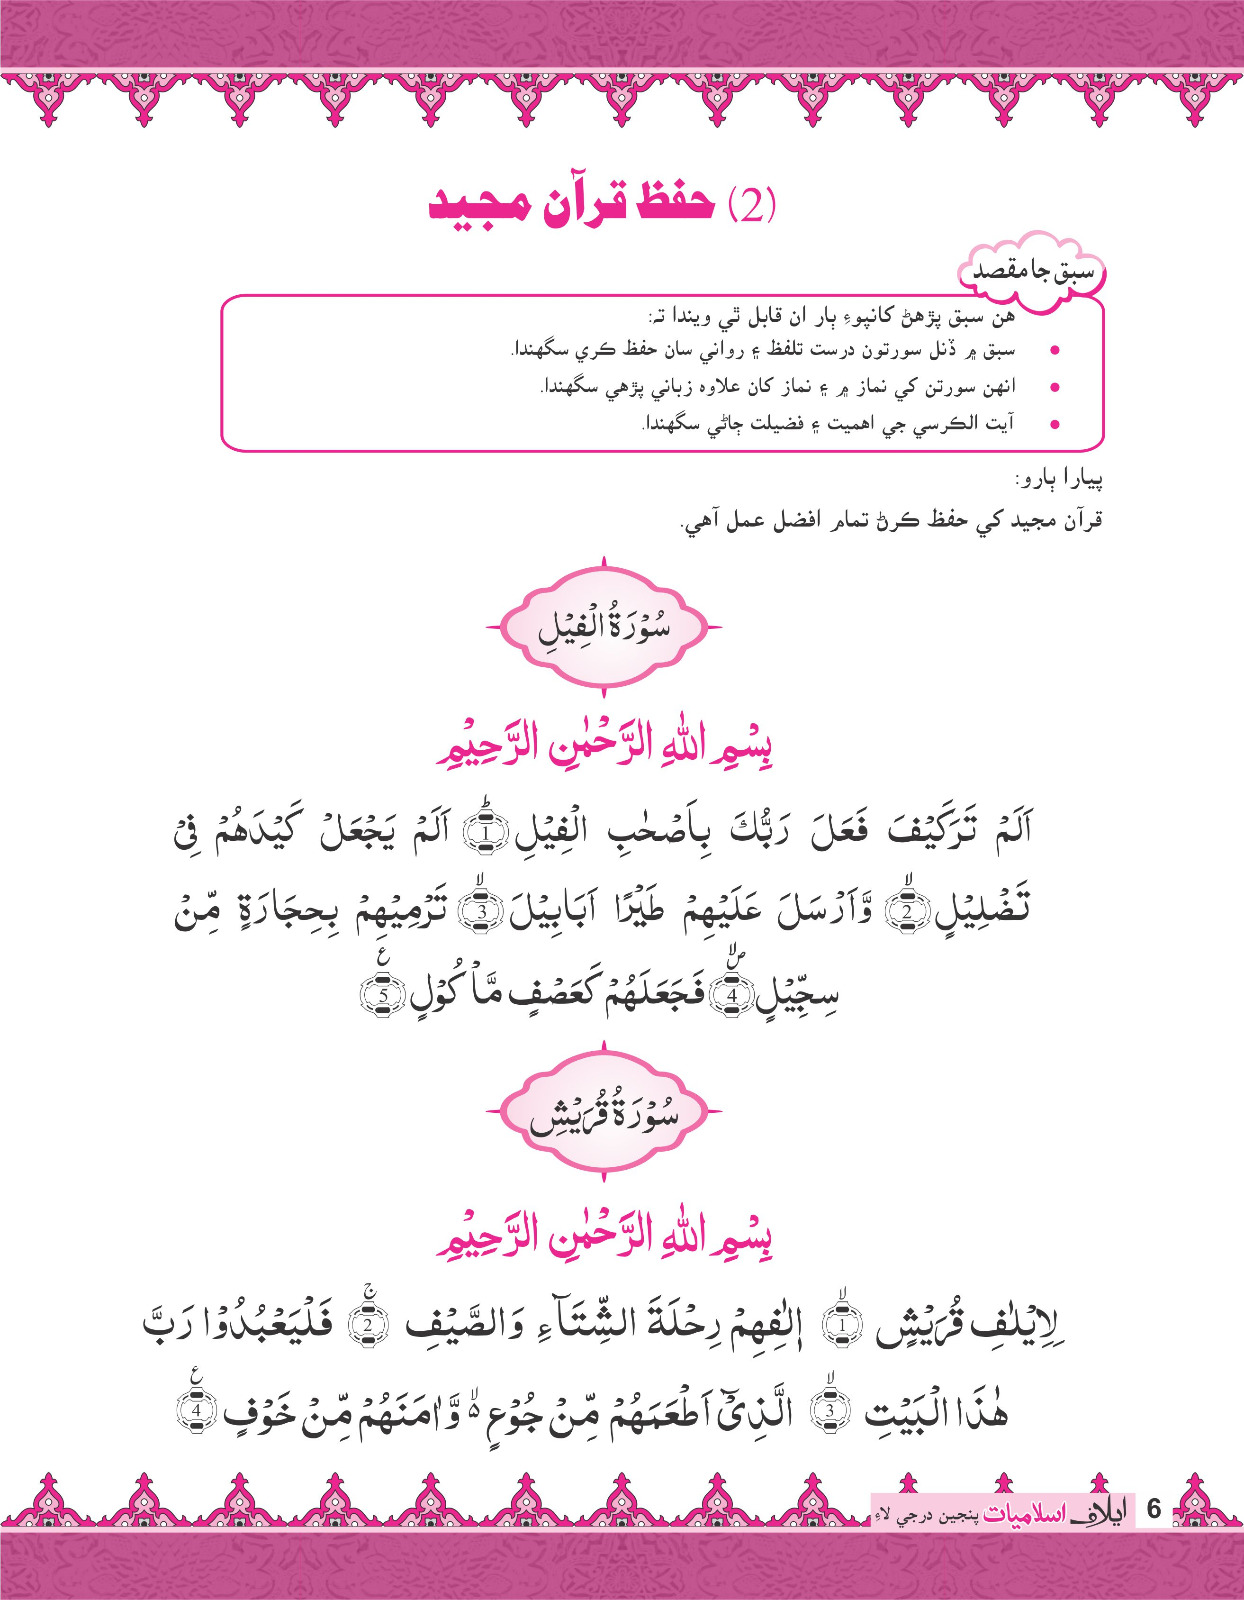 (2) حفظ قرآن مجيد
سبق جا مقصد
هن سبق پڙهڻ کانپوءِ ٻار ان قابل ٿي ويندا تہ:
• سبق ۾ ڏنل سورتون درست تلفظ ۽ رواني سان حفظ ڪري سگهندا.
• انهن سورتن کي نماز ۾ ۽ نماز کان علاوه زباني پڙهي سگهندا.
• آيت الڪرسي جي اهميت ۽ فضيلت ڄاڻي سگهندا.
پيارا ٻارو:
قرآن مجيد کي حفظ ڪرڻ تمام افضل عمل آهي.
سُوْرَةُ الْفِيْلِ
بِسْمِ اللّٰهِ الرَّحْمٰنِ الرَّحِيْمِ
اَلَمْ تَرَكَيْفَ فَعَلَ رَبُّكَ بِاَصْحٰبِ الْفِيْلِ ؕ 1 اَلَمْ يَجْعَلْ كَيْدَهُمْ فِىْ
تَضْلِيْلٍ ۙ 2 وَّاَرْسَلَ عَلَيْهِمْ طَيْرًا اَبَابِيْلَ ۙ 3 تَرْمِيْهِمْ بِحِجَارَةٍ مِّنْ
سِجِّيْلٍ ۪ۙ 4 فَجَعَلَهُمْ كَعَصْفٍ مَّاْكُوْلٍ ع 5
سُوْرَةُ قُرَيْشٍ
بِسْمِ اللّٰهِ الرَّحْمٰنِ الرَّحِيْمِ
لِاِيْلٰفِ قُرَيْشٍ ۙ 1 اٖلٰفِهِمْ رِحْلَةَ الشِّتَآءِ وَالصَّيْفِ ۚ 2 فَلْيَعْبُدُوْا رَبَّ
هٰذَا الْبَيْتِ ۙ 3 الَّذِىْٓ اَطْعَمَهُمْ مِّنْ جُوْعٍ ۙ۬ وَّاٰمَنَهُمْ مِّنْ خَوْفٍ ع 4
6 ايلاف اسلاميات پنجين درجي لاءِ